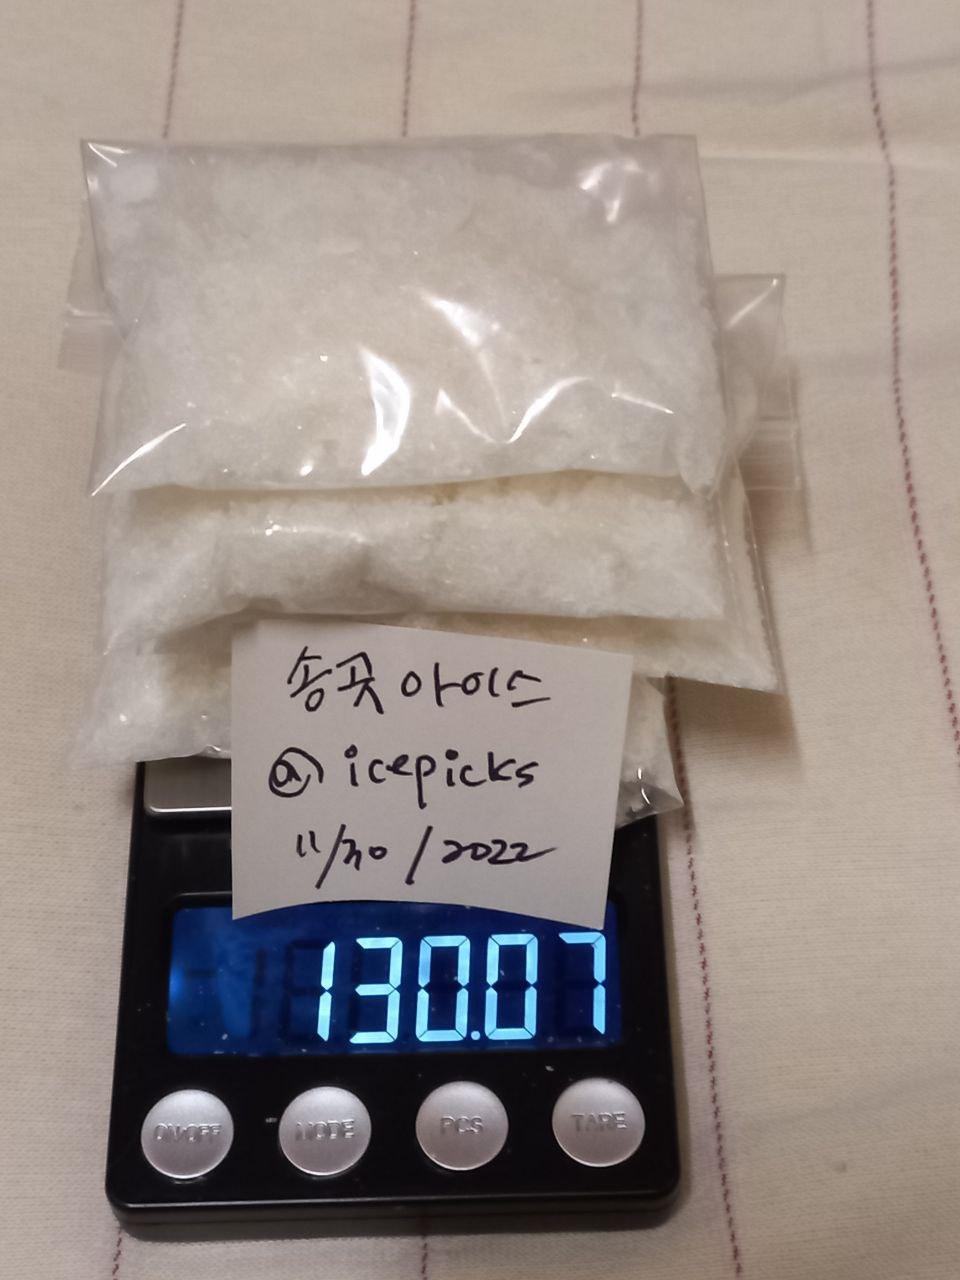 송곳 아이스
@ icepicks
11/30/2022
130.07
ON/OFF
MODE
PCS
TARE